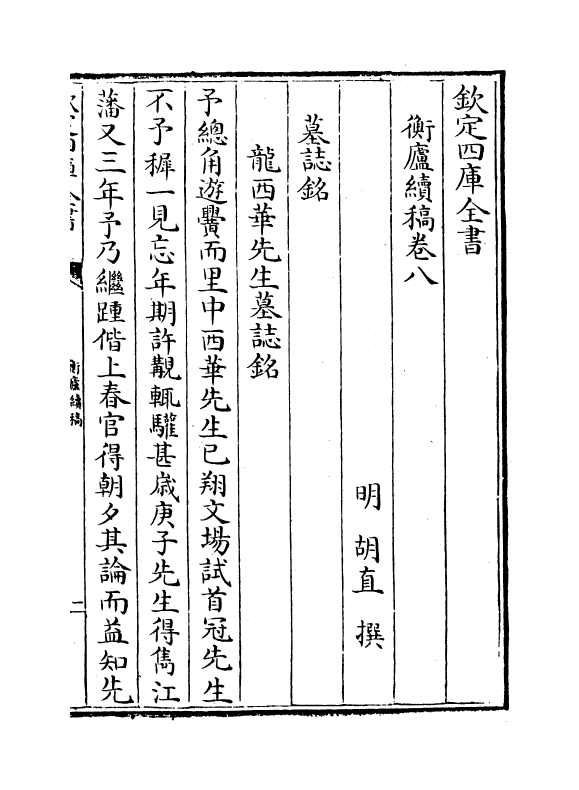 欽定四庫全書
衡廬續稿卷八
明 胡直 撰
墓誌銘
龍西華先生墓誌銘
予總角遊黌而里中西華先生已翔文場試首冠先生
不予穉一見忘年期許覯輒驩甚歳庚子先生得雋江
藩又三年予乃繼踵偕上春官得朝夕其論而益知先
衡廬續稿